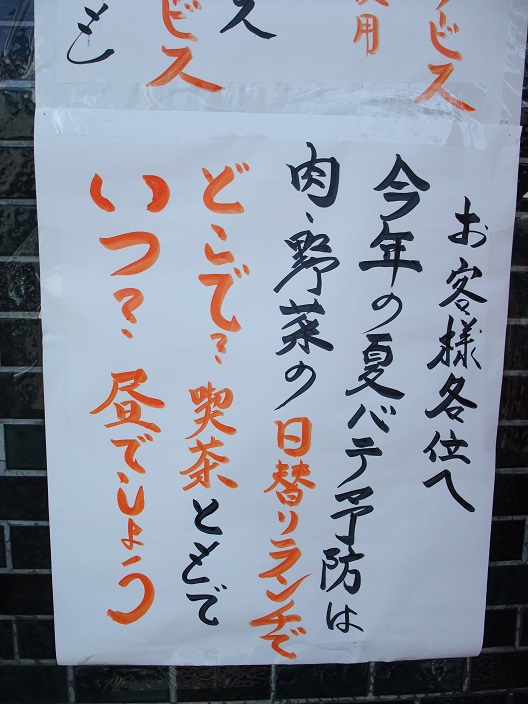 ービス
用
ス
ビス
とも
お客様各位へ
今年の夏バテ予防は
肉、野菜の日替りランチで
どこで?喫茶ともで
いつ?昼でしょう